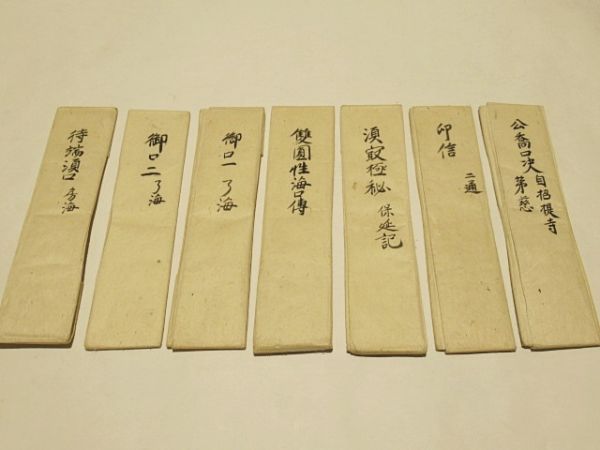 公喬口决 自招提寺
第慈
印信 二通
湏㝡極秘 保延記
雙圓性海口傳
御口一 了海
御口二 了海
待瑞湏口 了海